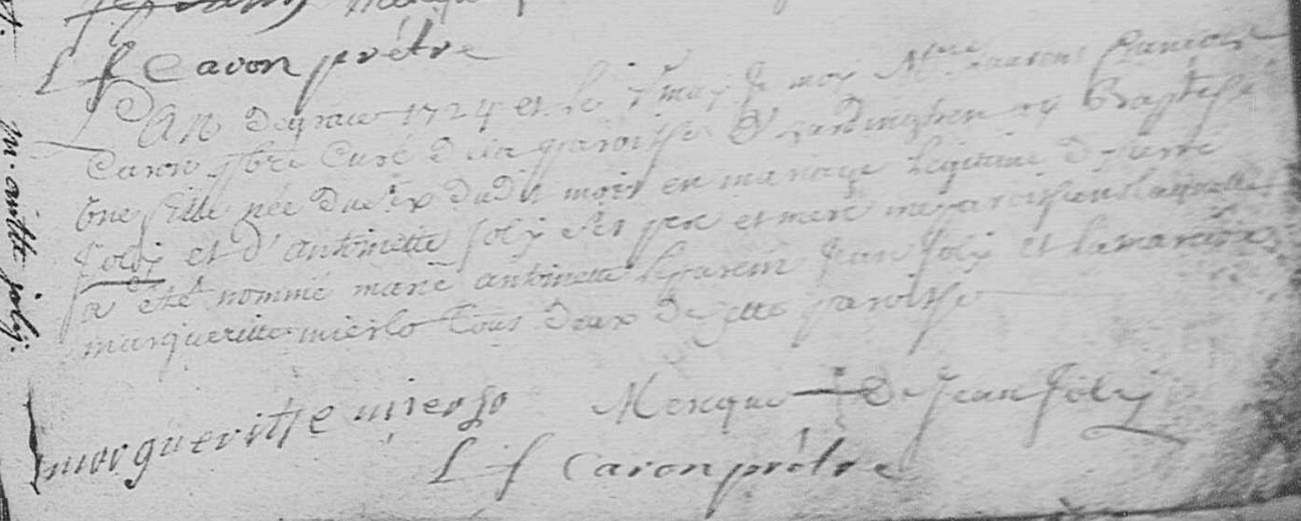 L f Caron prétre
L'An de grace 1724 et le moy Mtre Laurens François
Caron pbre Curé de la paroisse d'hardinghen ay Baptisé
Une fille née du dudit mois en mariage legitime de pierre
Joly et d'antoinette Joly ses pere et mere mes paroissiens laquelle
a eté nommé marie antoinette le parein Jean Joly et la mareine
marguerite mierlo tous deux de cette paroisse
margueritte Merque de Jean Joly
L f Caron prétre
m. antte joly.